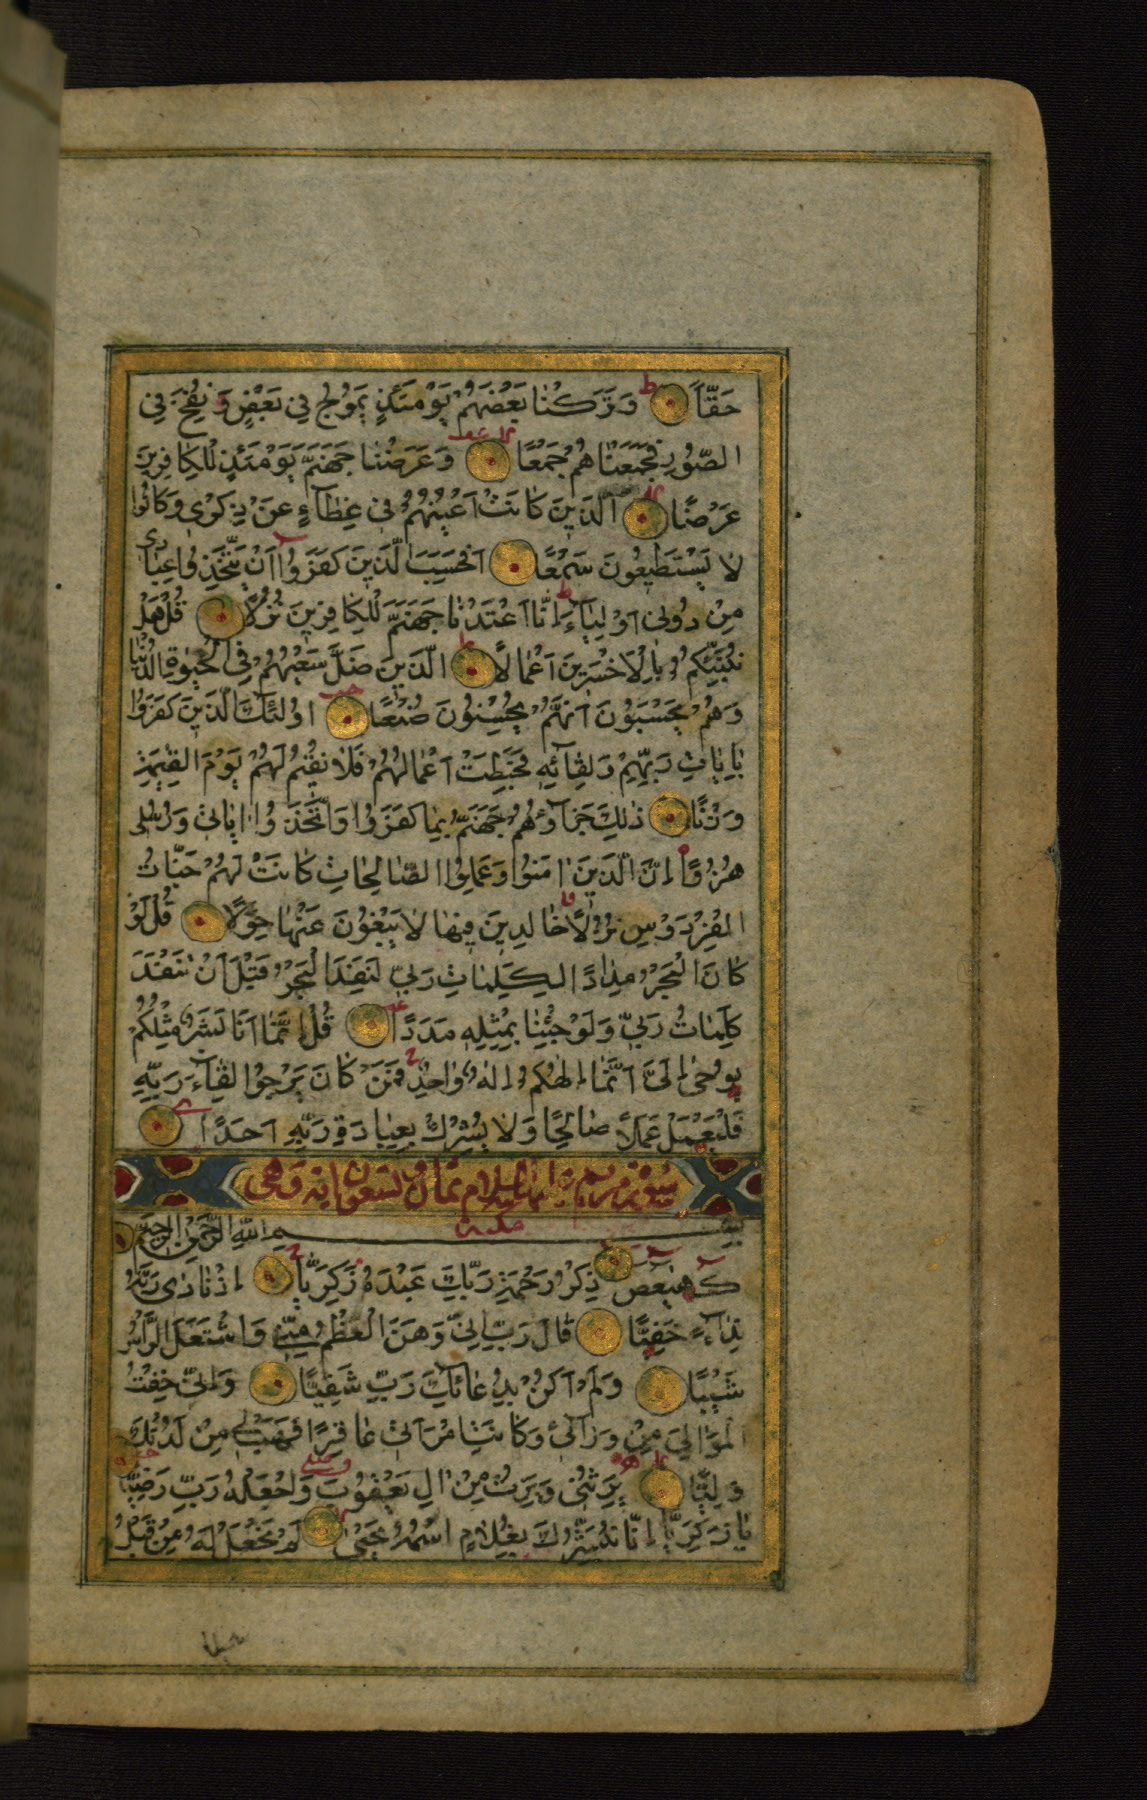 حَقًّا وَتَرَكْنَا بَعْضَهُمْ يَوْمَئِذٍ يَمُوجُ فِي بَعْضٍ وَنُفِخَ فِي
الصُّورِ فَجَمَعْنَاهُمْ جَمْعًا وَعَرَضْنَا جَهَنَّمَ يَوْمَئِذٍ لِلْكَافِرِينَ
عَرْضًا الَّذِينَ كَانَتْ أَعْيُنُهُمْ فِي غِطَآءٍ عَنْ ذِكْرِي وَكَانُوا
لَا يَسْتَطِيعُونَ سَمْعًا أَفَحَسِبَ الَّذِينَ كَفَرُوا أَنْ يَتَّخِذُوا عِبَادِي
مِنْ دُونِي أَوْلِيَآءَ إِنَّا أَعْتَدْنَا جَهَنَّمَ لِلْكَافِرِينَ نُزُلًا قُلْ هَلْ
نُنَبِّئُكُمْ بِالْأَخْسَرِينَ أَعْمَالًا الَّذِينَ ضَلَّ سَعْيُهُمْ فِي الْحَيٰوةِ الدُّنْيَا
وَهُمْ يَحْسَبُونَ أَنَّهُمْ يُحْسِنُونَ صُنْعًا أُولٰئِكَ الَّذِينَ كَفَرُوا
بِاٰيَاتِ رَبِّهِمْ وَلِقَآئِهِ فَحَبِطَتْ أَعْمَالُهُمْ فَلَا نُقِيمُ لَهُمْ يَوْمَ الْقِيٰمَةِ
وَزْنًا ذٰلِكَ جَزَآؤُهُمْ جَهَنَّمُ بِمَا كَفَرُوا وَاتَّخَذُوا اٰيَاتِي وَرُسُلِي
هُزُوًا إِنَّ الَّذِينَ اٰمَنُوا وَعَمِلُوا الصَّالِحَاتِ كَانَتْ لَهُمْ جَنَّاتُ
الْفِرْدَوْسِ نُزُلًا خَالِدِينَ فِيهَا لَا يَبْغُونَ عَنْهَا حِوَلًا قُلْ لَوْ
كَانَ الْبَحْرُ مِدَادًا لِكَلِمَاتِ رَبِّي لَنَفِدَ الْبَحْرُ قَبْلَ أَنْ تَنْفَدَ
كَلِمَاتُ رَبِّي وَلَوْ جِئْنَا بِمِثْلِهِ مَدَدًا قُلْ إِنَّمَا أَنَا بَشَرٌ مِثْلُكُمْ
يُوحٰى إِلَيَّ أَنَّمَا إِلٰهُكُمْ إِلٰهٌ وَاحِدٌ فَمَنْ كَانَ يَرْجُوا لِقَآءَ رَبِّهِ
فَلْيَعْمَلْ عَمَلًا صَالِحًا وَلَا يُشْرِكْ بِعِبَادَةِ رَبِّهِ أَحَدًا
سورة مريم السلام ثمان وتسعون اية وهي
مكية
بِسْمِ اللهِ الرَّحْمٰنِ الرَّحِيمِ
كهيعص ذِكْرُ رَحْمَةِ رَبِّكَ عَبْدَهُ زَكَرِيَّا إِذْ نَادٰى رَبَّهُ
نِدَآءً خَفِيًّا قَالَ رَبِّ إِنِّي وَهَنَ الْعَظْمُ مِنِّي وَاشْتَعَلَ الرَّأْسُ
شَيْبًا وَلَمْ أَكُنْ بِدُعَائِكَ رَبِّ شَقِيًّا وَإِنِّي خِفْتُ
الْمَوَالِيَ مِنْ وَرَآئِي وَكَانَتِ امْرَأَتِي عَاقِرًا فَهَبْ لِي مِنْ لَدُنْكَ
وَلِيًّا يَرِثُنِي وَيَرِثُ مِنْ اٰلِ يَعْقُوبَ وَاجْعَلْهُ رَبِّ رَضِيًّا
يَا زَكَرِيَّا إِنَّا نُبَشِّرُكَ بِغُلَامٍ اسْمُهُ يَحْيٰى لَمْ نَجْعَلْ لَهُ مِنْ قَبْلُ